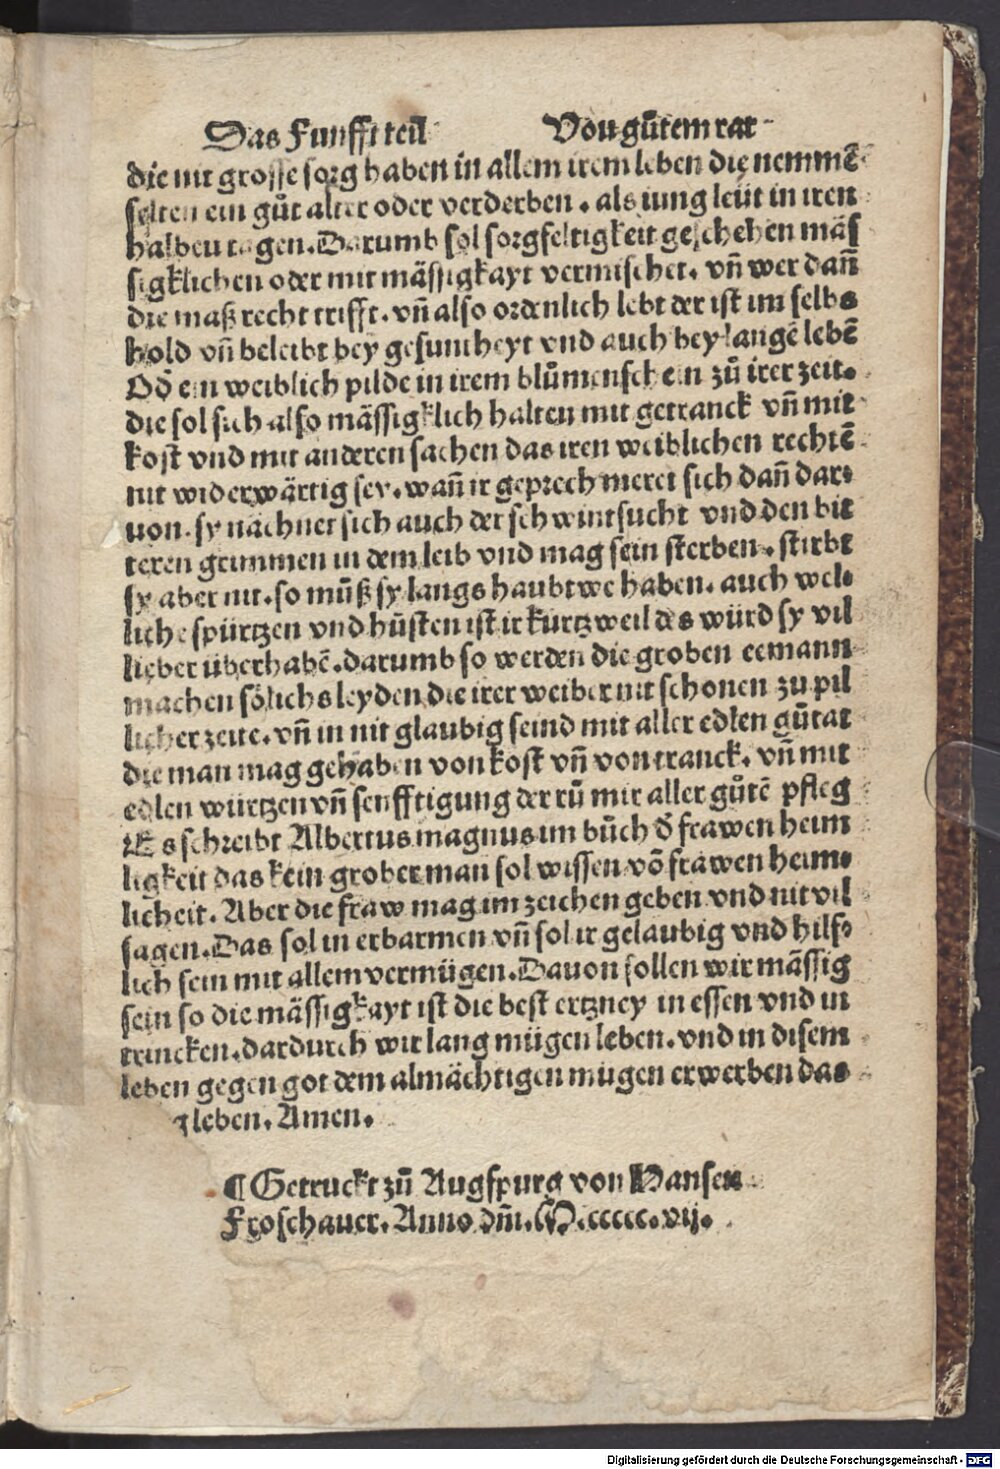 Das Funfft teil Von gůtem rat
die mit grosse sorg haben in allem irem leben die nemmē
selten ein gůt alter oder verderben. als iung leüt in iren
halben tagen. Darumb sol sorgfeltigkeit geschehen mäs
sigklichen oder mit mässigkayt vermischet. vñ wer dañ
die maß recht trifft. vñ also ordenlich lebt der ist im selbs
hold vñ beleibt bey gesuntheyt vnd auch bey langē lebē
Od̄ ein weiblich pilde in irem blůmenschein zů irer zeit.
die sol sich also mässigklich halten mit getranck vñ mit
kost vnd mit anderen sachen das iren weiblichen rechtē
nit widerwärtig sey. wañ ir geprech meret sich dañ dar⸗
uon. sy nächnet sich auch der schwintsucht vnd den bit
teren grimmen in dem leib vnd mag sein sterben. stirbt
sy aber nit. so můß sy langs haubtwe haben. auch wel⸗
liche spürtzen vnd hůsten ist ir kurtzweil des würd sy vil
lieber überhabē. darumb so werden die groben eemann
machen sölichs leyden die irer weiber nit schonen zu pil
licher zeite. vñ in nit glaubig seind mit aller edlen gůtat
die man mag gehaben von kost vñ von tranck. vñ mit
edlen würtzen vñ senfftigung der rů mit aller gůtē pfleg
Es schreibt Albertus magnus im bůch d̄ frawen heim
ligkeit das kein grober man sol wissen vō frawen heim⸗
licheit. Aber die fraw mag im zeichen geben vnd nit vil
sagen. Das sol in erbarmen vñ sol ir gelaubig vnd hilf⸗
lich sein mit allem vermügen. Dauon sollen wir mässig
sein so die mässigkayt ist die best ertzney in essen vnd in
trincken. dardurch wir lang mügen leben. vnd in disem
leben gegen got dem almächtigen mügen erwerben das
g leben. Amen.
¶ Getruckt zů Augspurg von Hansen
Froschauer. Anno dm̄. M.ccccc.vij.
Digitalisierung gefördert durch die Deutsche Forschungsgemeinschaft - DFG